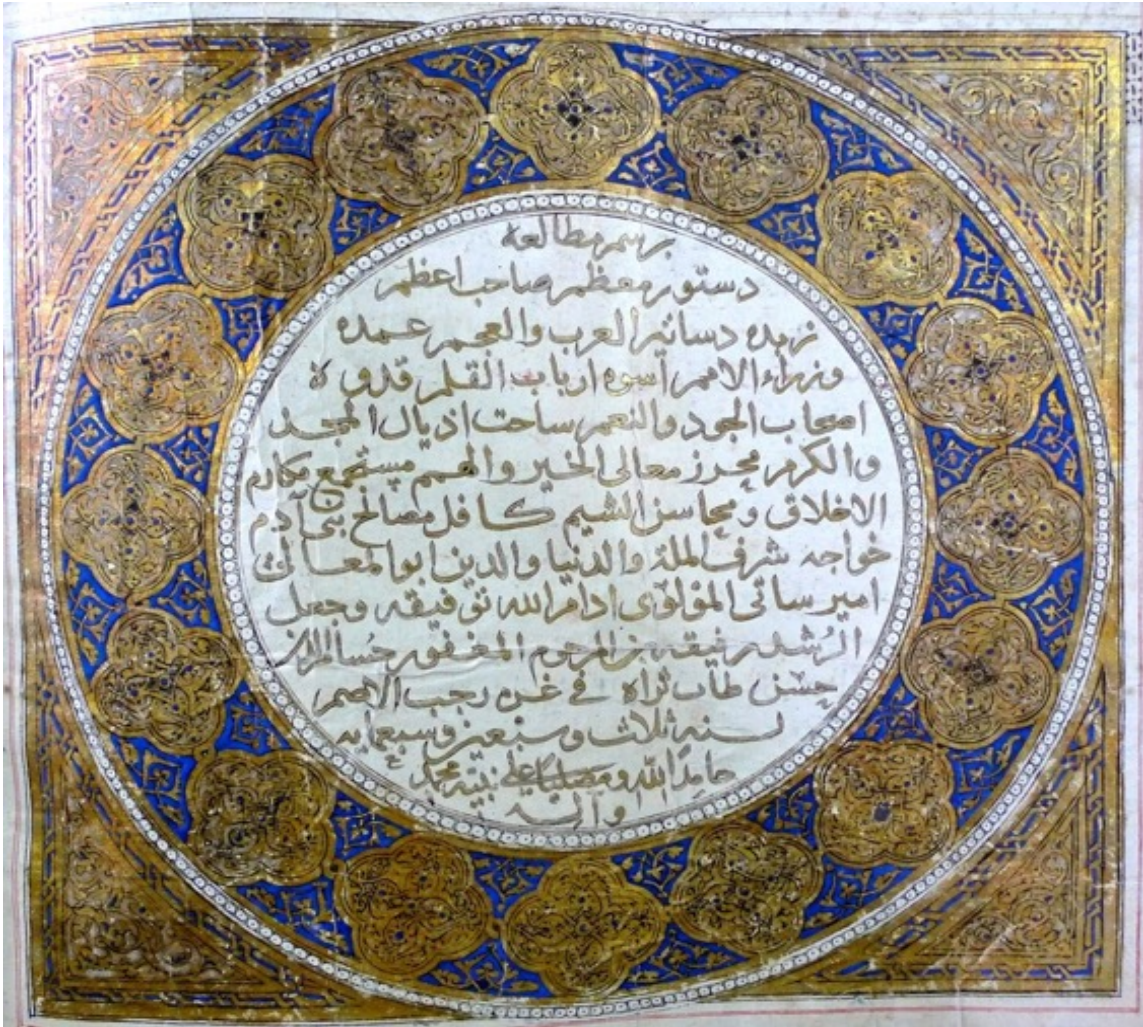 برسم مطالعه
دستور معظم صاحب اعظم
زبده دساتیر العرب والعجم عمده
وزراء الامم اسوه ارباب القلم قدوه
اصحاب الجود والنعم ساحت اذیال المجد
والکرم محرز معالی الخیر والهمم مستجمع مکارم
الاخلاق ومحاسن الشیم کافل مصالح بنی آدم
خواجه شرف الملة والدنیا والدین ابو المعالی
امیر ساتی المولوی ادام الله توفیقه وجعل
الرُشد رفیقه بن المرحوم المغفور حُسام الدین
حسن طاب ثراه فی غره رجب الاصم
لسنه ثلاث وسبعین وسبعمایه
حامِداً لله ومصلیاً علی نبیّه محمد
واله